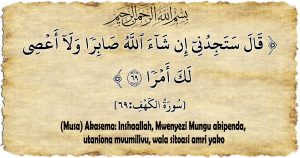 بِسْمِ اللَّهِ الرَّحْمَٰنِ الرَّحِيمِ
﴿ قَالَ سَتَجِدُنِيٓ إِن شَآءَ ٱللَّهُ صَابِرًا وَلَآ أَعْصِي
لَكَ أَمْرًا ۝٦٩ ﴾
[سورة الكهف:٦٩]
(Musa) Akasema: Inshaallah, Mwenyezi Mungu akipenda,
utaniona mvumilivu, wala sitoasi amri yako